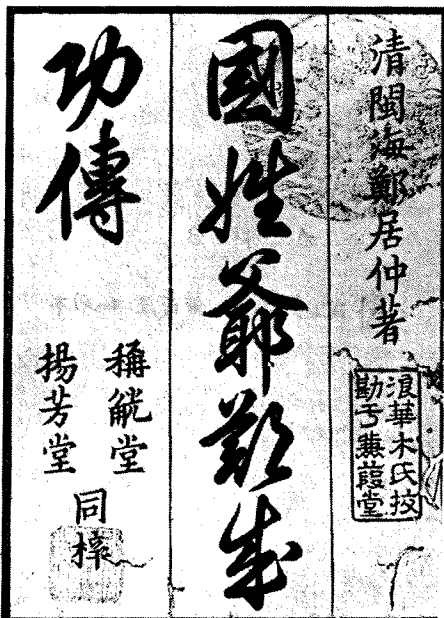 清閩海鄭居仲著
浪華木氏挍
勘于蒹葭堂
國姓爺鄭成
功傳
稱觥堂
揚芳堂
同榟